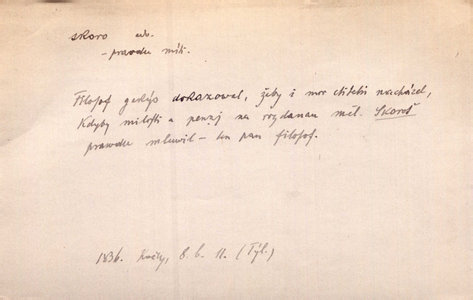 skoro adv.
– prawdu míti.
Filosof gakýs dokazowal, žeby i moc ctitelů nacházel,
Kdyby milosti a peněz na rozdanau měl. Skoroš
prawdu mluwil – ten pan filosof.
1836. Květy, 8. b. 11. (Tyl.)